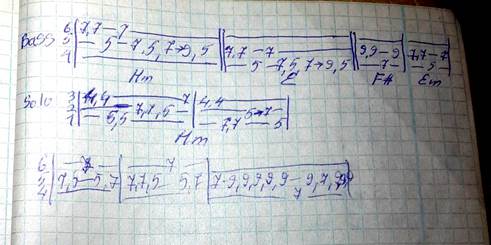 6 7,7–7
Bass 5 – 5–7,5,7→9,5 7,7–7 9,9–9 7,7–7
4 – 5–7,5,7→9,5 – 7 – – 5 –
Hm F# Em
Solo 3 4,4 – 7 4,4
2 7,7,5 5–7–
1 – 5,5 – 7,7 – 5
Hm
6 – 7 – 7
5 7,5–5,7 7,7,5 5,7 7-9,9,9,9,9–9,7,9
4 7